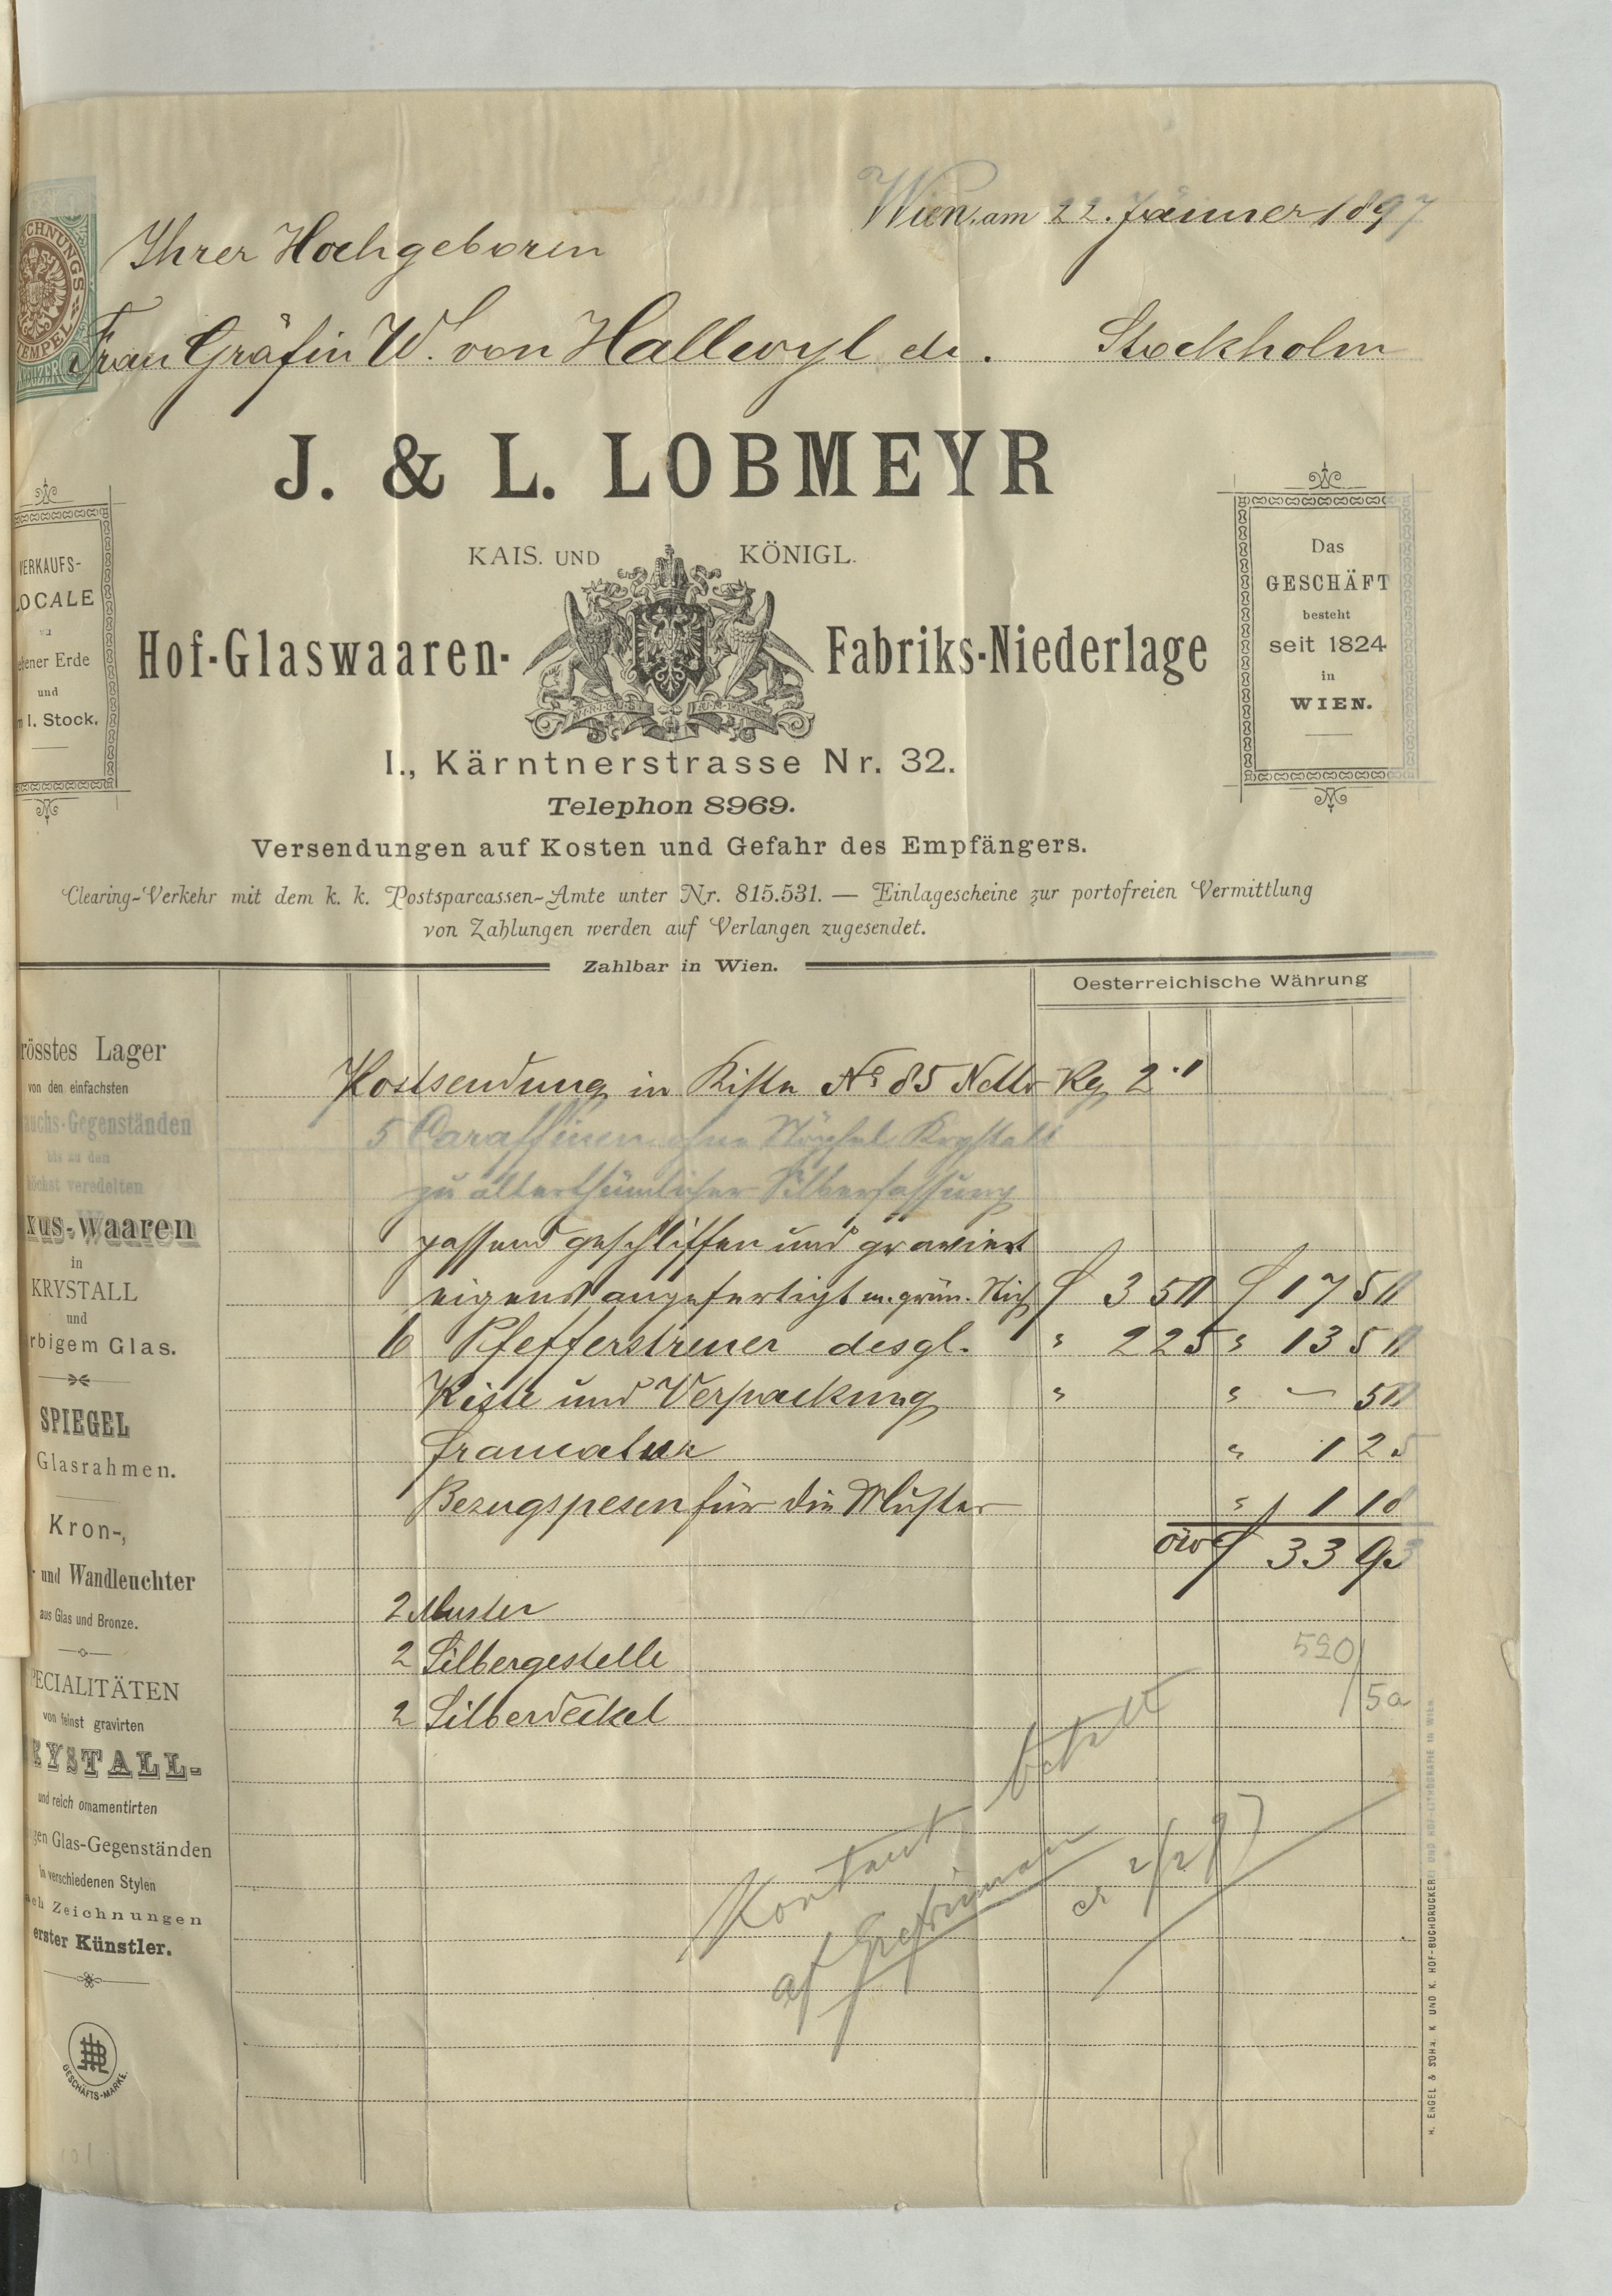 Wien, am 22. Jänner 1897
Ihrer Hochgeboren
Frau Gräfin W. von Hallwyl etc. Stockholm
CHNUNGS
TEMPEL
KREUZER
J. & L. LOBMEYR
KAIS. UND KÖNIGL.
Hof-Glaswaaren- Fabriks-Niederlage
I., Kärntnerstrasse Nr. 32.
Telephon 8969.
Versendungen auf Kosten und Gefahr des Empfängers.
Clearing-Verkehr mit dem k. k. Postsparcassen-Amte unter Nr. 815.531. — Einlagescheine zur portofreien Vermittlung
von Zahlungen werden auf Verlangen zugesendet.
VERKAUFS-
LOCALE
zu
ener Erde
und
I. Stock.
Das
GESCHÄFT
besteht
seit 1824
in
WIEN.
Zahlbar in Wien.
Oesterreichische Währung
Postsendung in Kiste No 85 Netto Kg 2.1
5 Caraffinen ohne Stöpsel Krystall
zu alterthümlicher Silberfassung
passend geschliffen und graviert
eigens angefertigt n. grün. f 3 50 f 17 50
6 Pfefferstreuer desgl. " 2 25 " 13 50
Kiste und Verpackung " " — 50
Francatur " 1 25
Bezugspesen für die Muster " 1 18
öw f 33 93
2 Muster
2 Silbergestelle
2 Silberdeckel
520
5a
Kontant betalt
af
d 2/2 97
rösstes Lager
von den einfachsten
auchs-Gegenständen
bis zu den
höchst veredelten
xus-Waaren
in
KRYSTALL
und
rbigem Glas.
SPIEGEL
Glasrahmen.
Kron-,
und Wandleuchter
aus Glas und Bronze.
PECIALITÄTEN
von feinst gravirten
RYSTALL-
und reich ornamentirten
gen Glas-Gegenständen
in verschiedenen Stylen
ach Zeichnungen
erster Künstler.
GESCHÄFTS-MARKE.
H. ENGEL & SOHN, K. UND K. HOF-BUCHDRUCKEREI UND HOF-LITHOGRAFIE IN WIEN